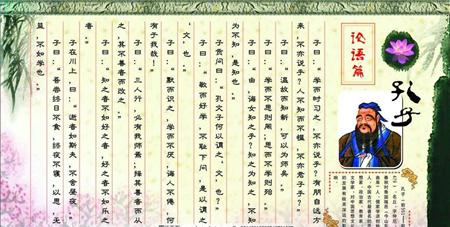 论语篇
孔子
子曰："学而时习之，不亦说乎？有朋自远方
来，不亦乐乎？人不知而不愠，不亦君子乎？"
子曰："温故而知新，可以为师矣。"
子曰："学而不思则罔，思而不学则殆。"
子曰："由，诲女知之乎！知之为知之，不知
为不知，是知也。"
子贡问曰："孔文子何以谓之'文'也？"
子曰："敏而好学，不耻下问，是以谓之
'文'也。"
子曰："默而识之，学而不厌，诲人不倦，何
有于我哉！"
子曰："三人行，必有我师焉；择其善者而从
之，其不善者而改之。"
子曰："知之者不如好之者，好之者不如乐之
者。"
子在川上，曰："逝者如斯夫，不舍昼夜。"
子曰："吾尝终日不食，终夜不寝，以思，无
益，不如学也。"